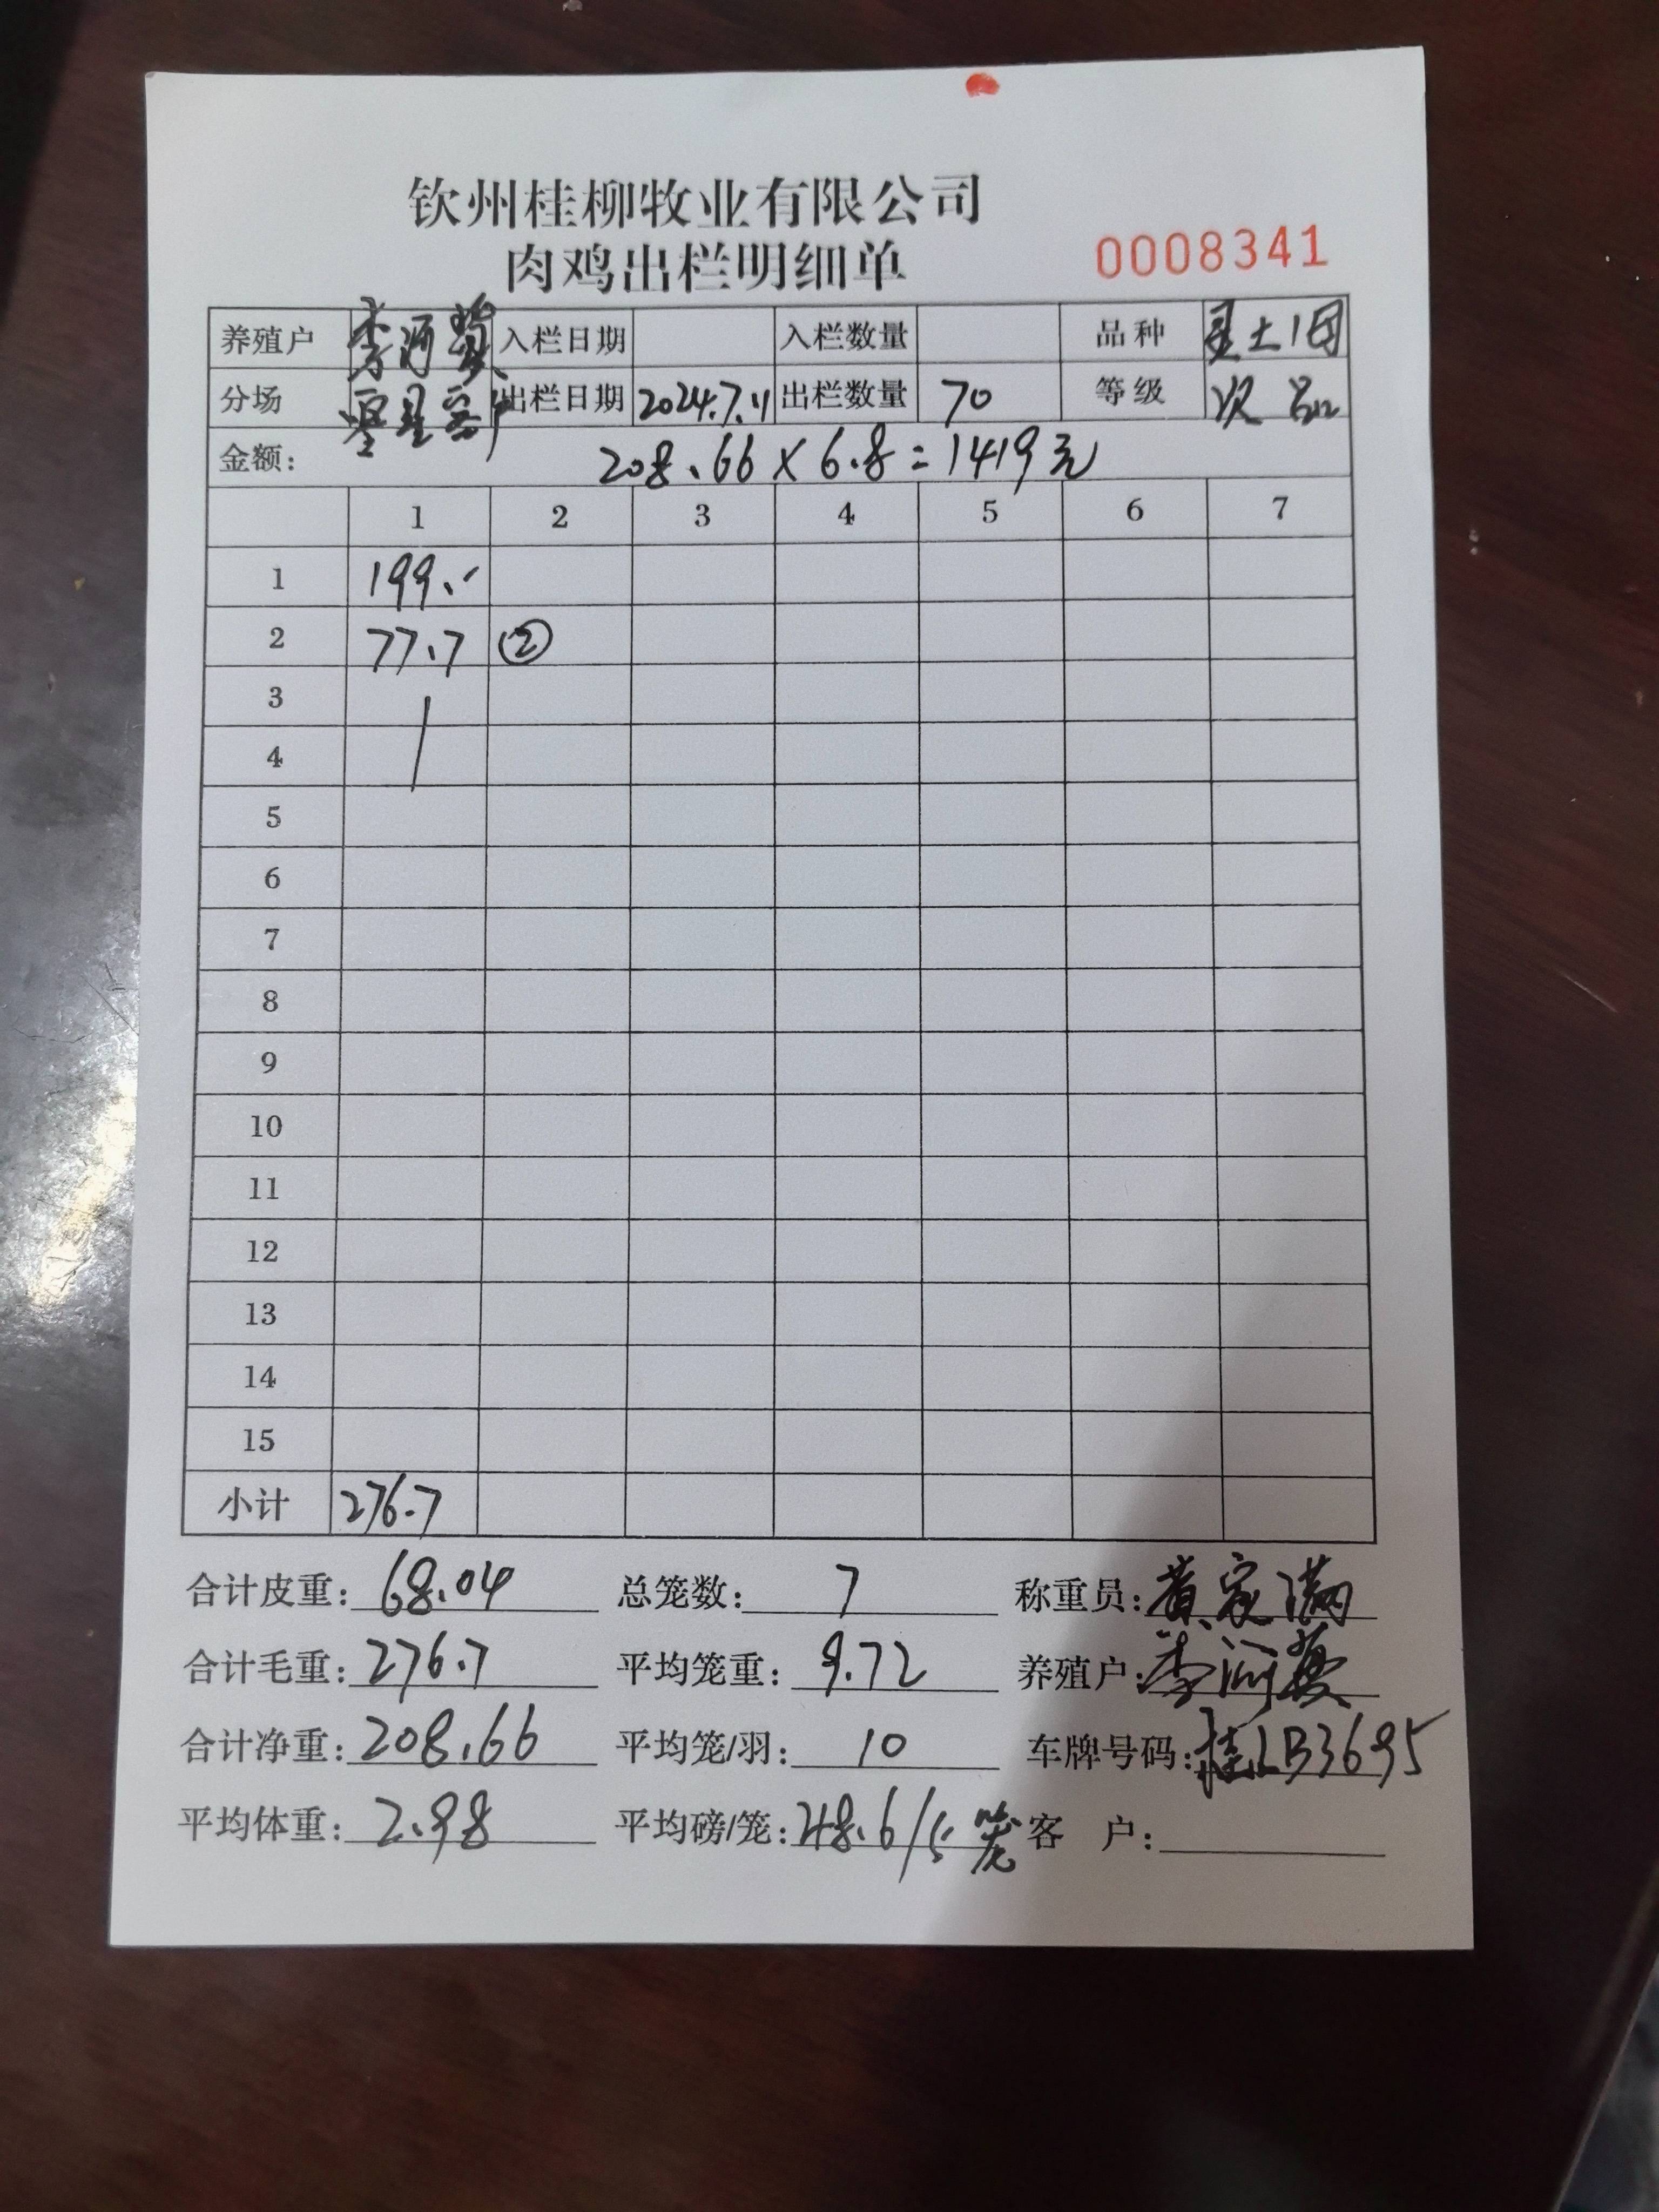 钦州桂柳牧业有限公司
肉鸡出栏明细单 0008341
养殖户 李 入栏日期 入栏数量 品种 灵土1
分场 零星客户 出栏日期 2024.7.11 出栏数量 70 等级 次品
金额: 208.66 × 6.8 = 1419元
1 2 3 4 5 6 7
1 199.
2 77.7 ②
3
4
5
6
7
8
9
10
11
12
13
14
15
小计 276.7
合计皮重: 68.04 总笼数: 7 称重员: 黄家满
合计毛重: 276.7 平均笼重: 9.72 养殖户: 李
合计净重: 208.66 平均笼/羽: 10 车牌号码: 桂LB3695
平均体重: 2.98 平均磅/笼: 48.6/5笼 客 户: